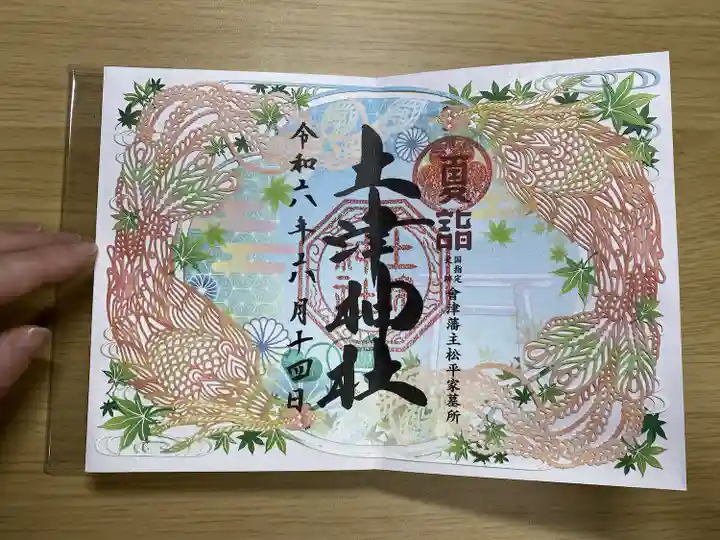 夏詣
国指定
史跡
會津藩主松平家墓所
土津神社
令和六年六月十四日